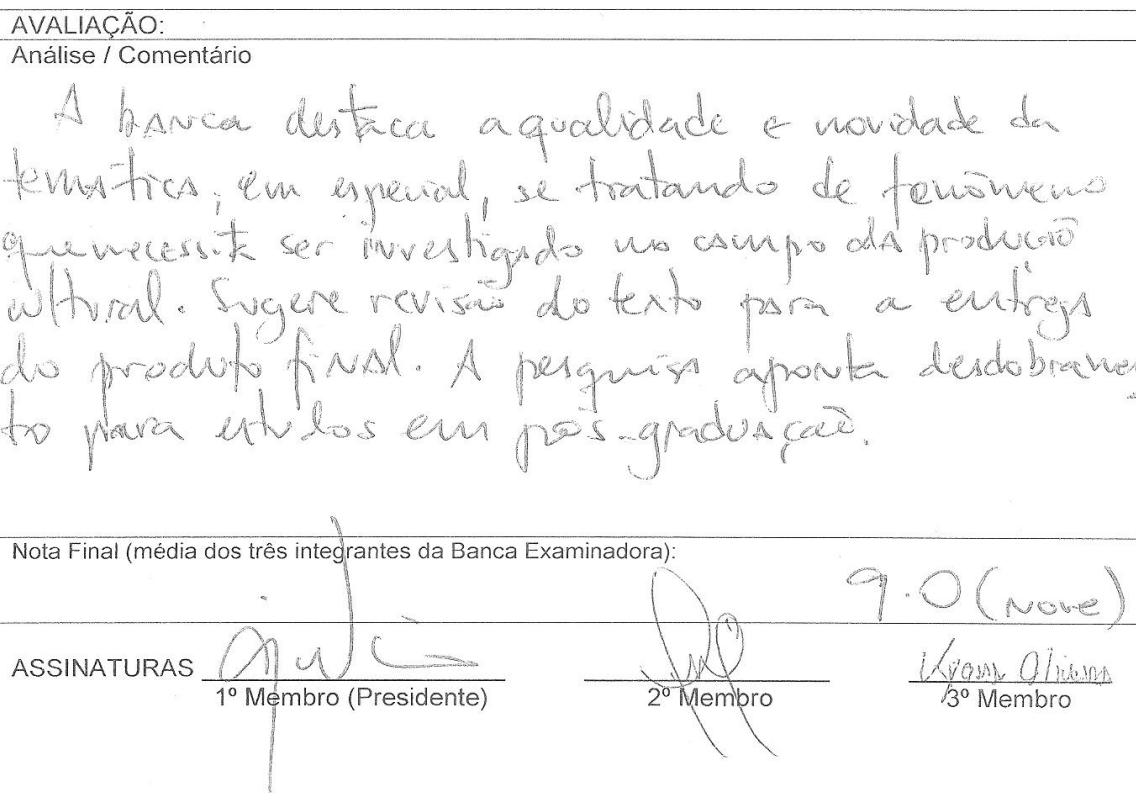 AVALIAÇÃO:
Análise / Comentário
A banca destaca a qualidade e novidade da
temática, em especial, se tratando de fenômeno
que necessita ser investigado no campo da produção
cultural. Sugere revisão do texto para a entrega
do produto final. A pesquisa aponta desdobramen
to para estudos em pós-graduação.
Nota Final (média dos três integrantes da Banca Examinadora):
9.0 (nove)
ASSINATURAS
1º Membro (Presidente) 2º Membro 3º Membro